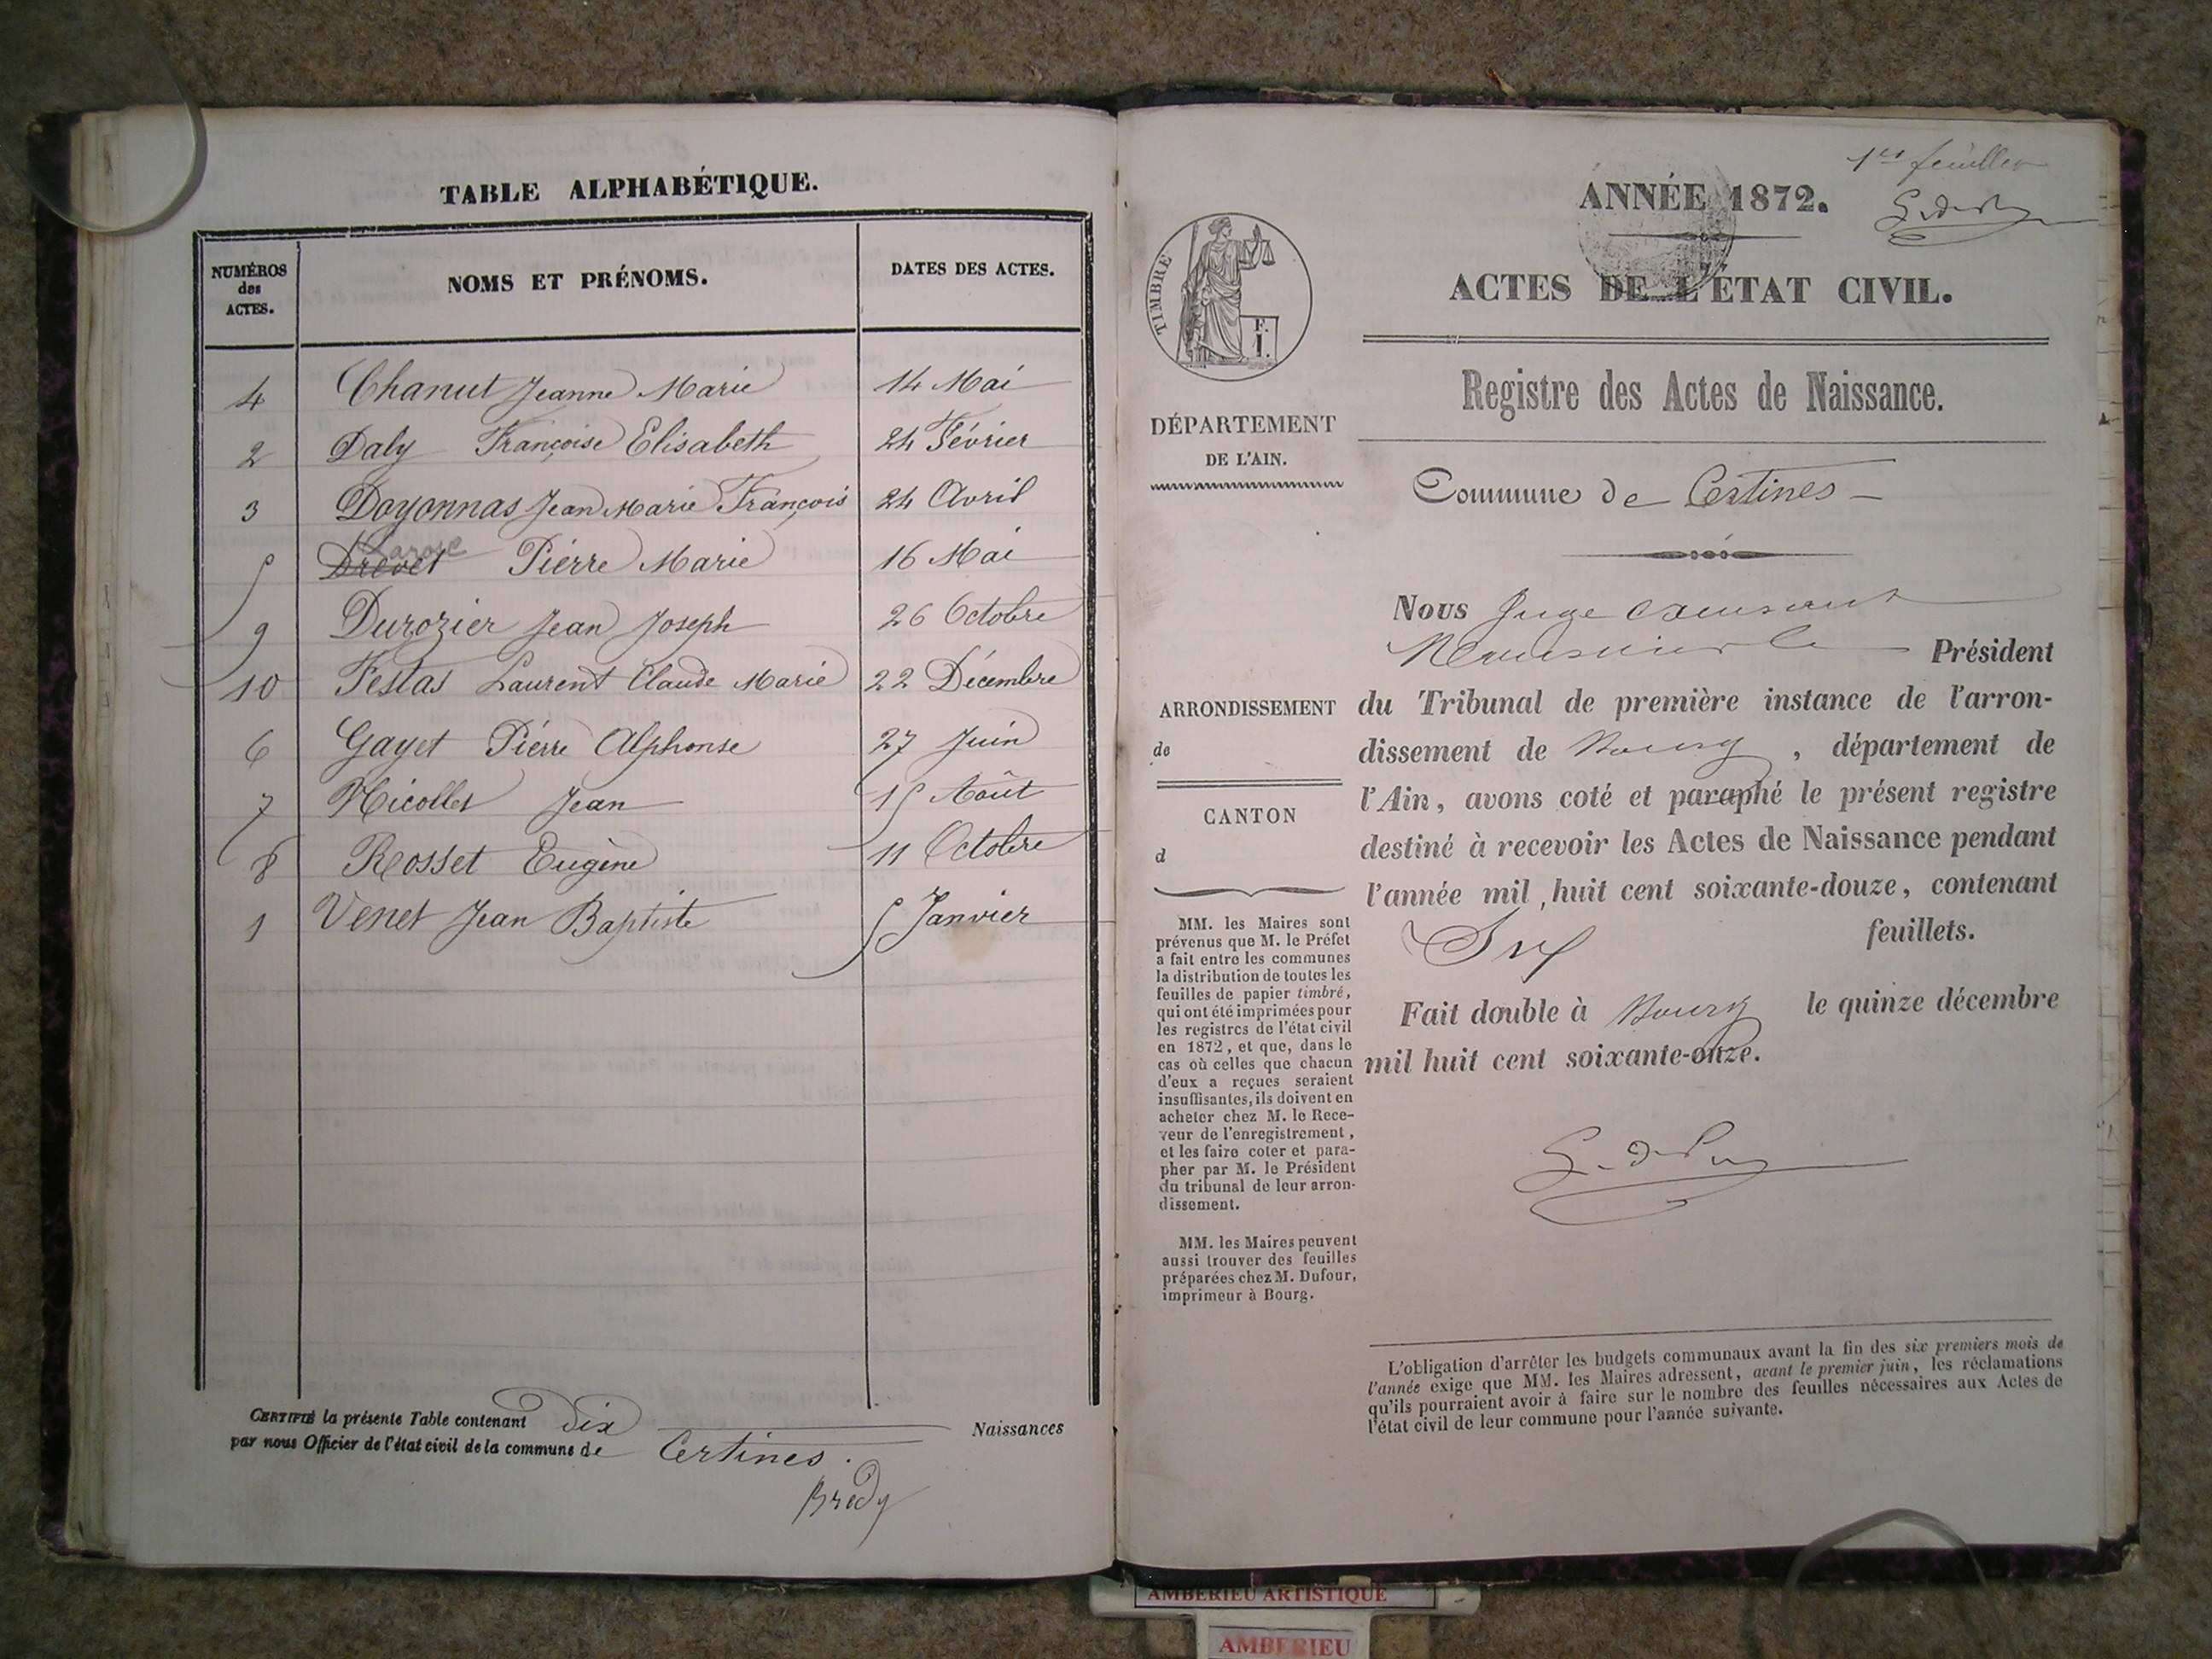 TABLE ALPHABÉTIQUE.
NUMÉROS des ACTES. NOMS ET PRÉNOMS. DATES DES ACTES.
4 Chanut Jeanne Marie 14 Mai
2 Daly Françoise Elisabeth 24 Février
3 Doyonnas Jean Marie François 24 Avril
5 Drevet Pierre Marie 16 Mai
9 Durozier Jean Joseph 26 Octobre
10 Festas Laurent Claude Marie 22 Décembre
6 Gayet Pierre Alphonse 27 Juin
7 Nicollet Jean 15 Août
8 Rosset Eugène 11 Octobre
1 Venet Jean Baptiste 5 Janvier
CERTIFIÉ la présente Table contenant dix Naissances
par nous Officier de l'état civil de la commune de Certines.
Brédy
1er feuillet
ANNÉE 1872.
ACTES DE L'ÉTAT CIVIL.
TIMBRE
F.
I.
Registre des Actes de Naissance.
DÉPARTEMENT
DE L'AIN.
Commune de Certines
Nous Juge
Monsieur le Président
ARRONDISSEMENT
de
CANTON
d
du Tribunal de première instance de l'arron-
dissement de Bourg, département de
l'Ain, avons coté et paraphé le présent registre
destiné à recevoir les Actes de Naissance pendant
l'année mil huit cent soixante-douze, contenant
Six feuillets.
Fait double à Bourg le quinze décembre
mil huit cent soixante-onze.
MM. les Maires sont
prévenus que M. le Préfet
a fait entre les communes
la distribution de toutes les
feuilles de papier timbré,
qui ont été imprimées pour
les registres de l'état civil
en 1872, et que, dans le
cas où celles que chacun
d'eux a reçues seraient
insuffisantes, ils doivent en
acheter chez M. le Rece-
veur de l'enregistrement,
et les faire coter et para-
pher par M. le Président
du tribunal de leur arron-
dissement.
MM. les Maires peuvent
aussi trouver des feuilles
préparées chez M. Dufour,
imprimeur à Bourg.
L'obligation d'arrêter les budgets communaux avant la fin des six premiers mois de
l'année exige que MM. les Maires adressent, avant le premier juin, les réclamations
qu'ils pourraient avoir à faire sur le nombre des feuilles nécessaires aux Actes de
l'état civil de leur commune pour l'année suivante.
AMBERIEU ARTISTIQUE
AMBERIEU